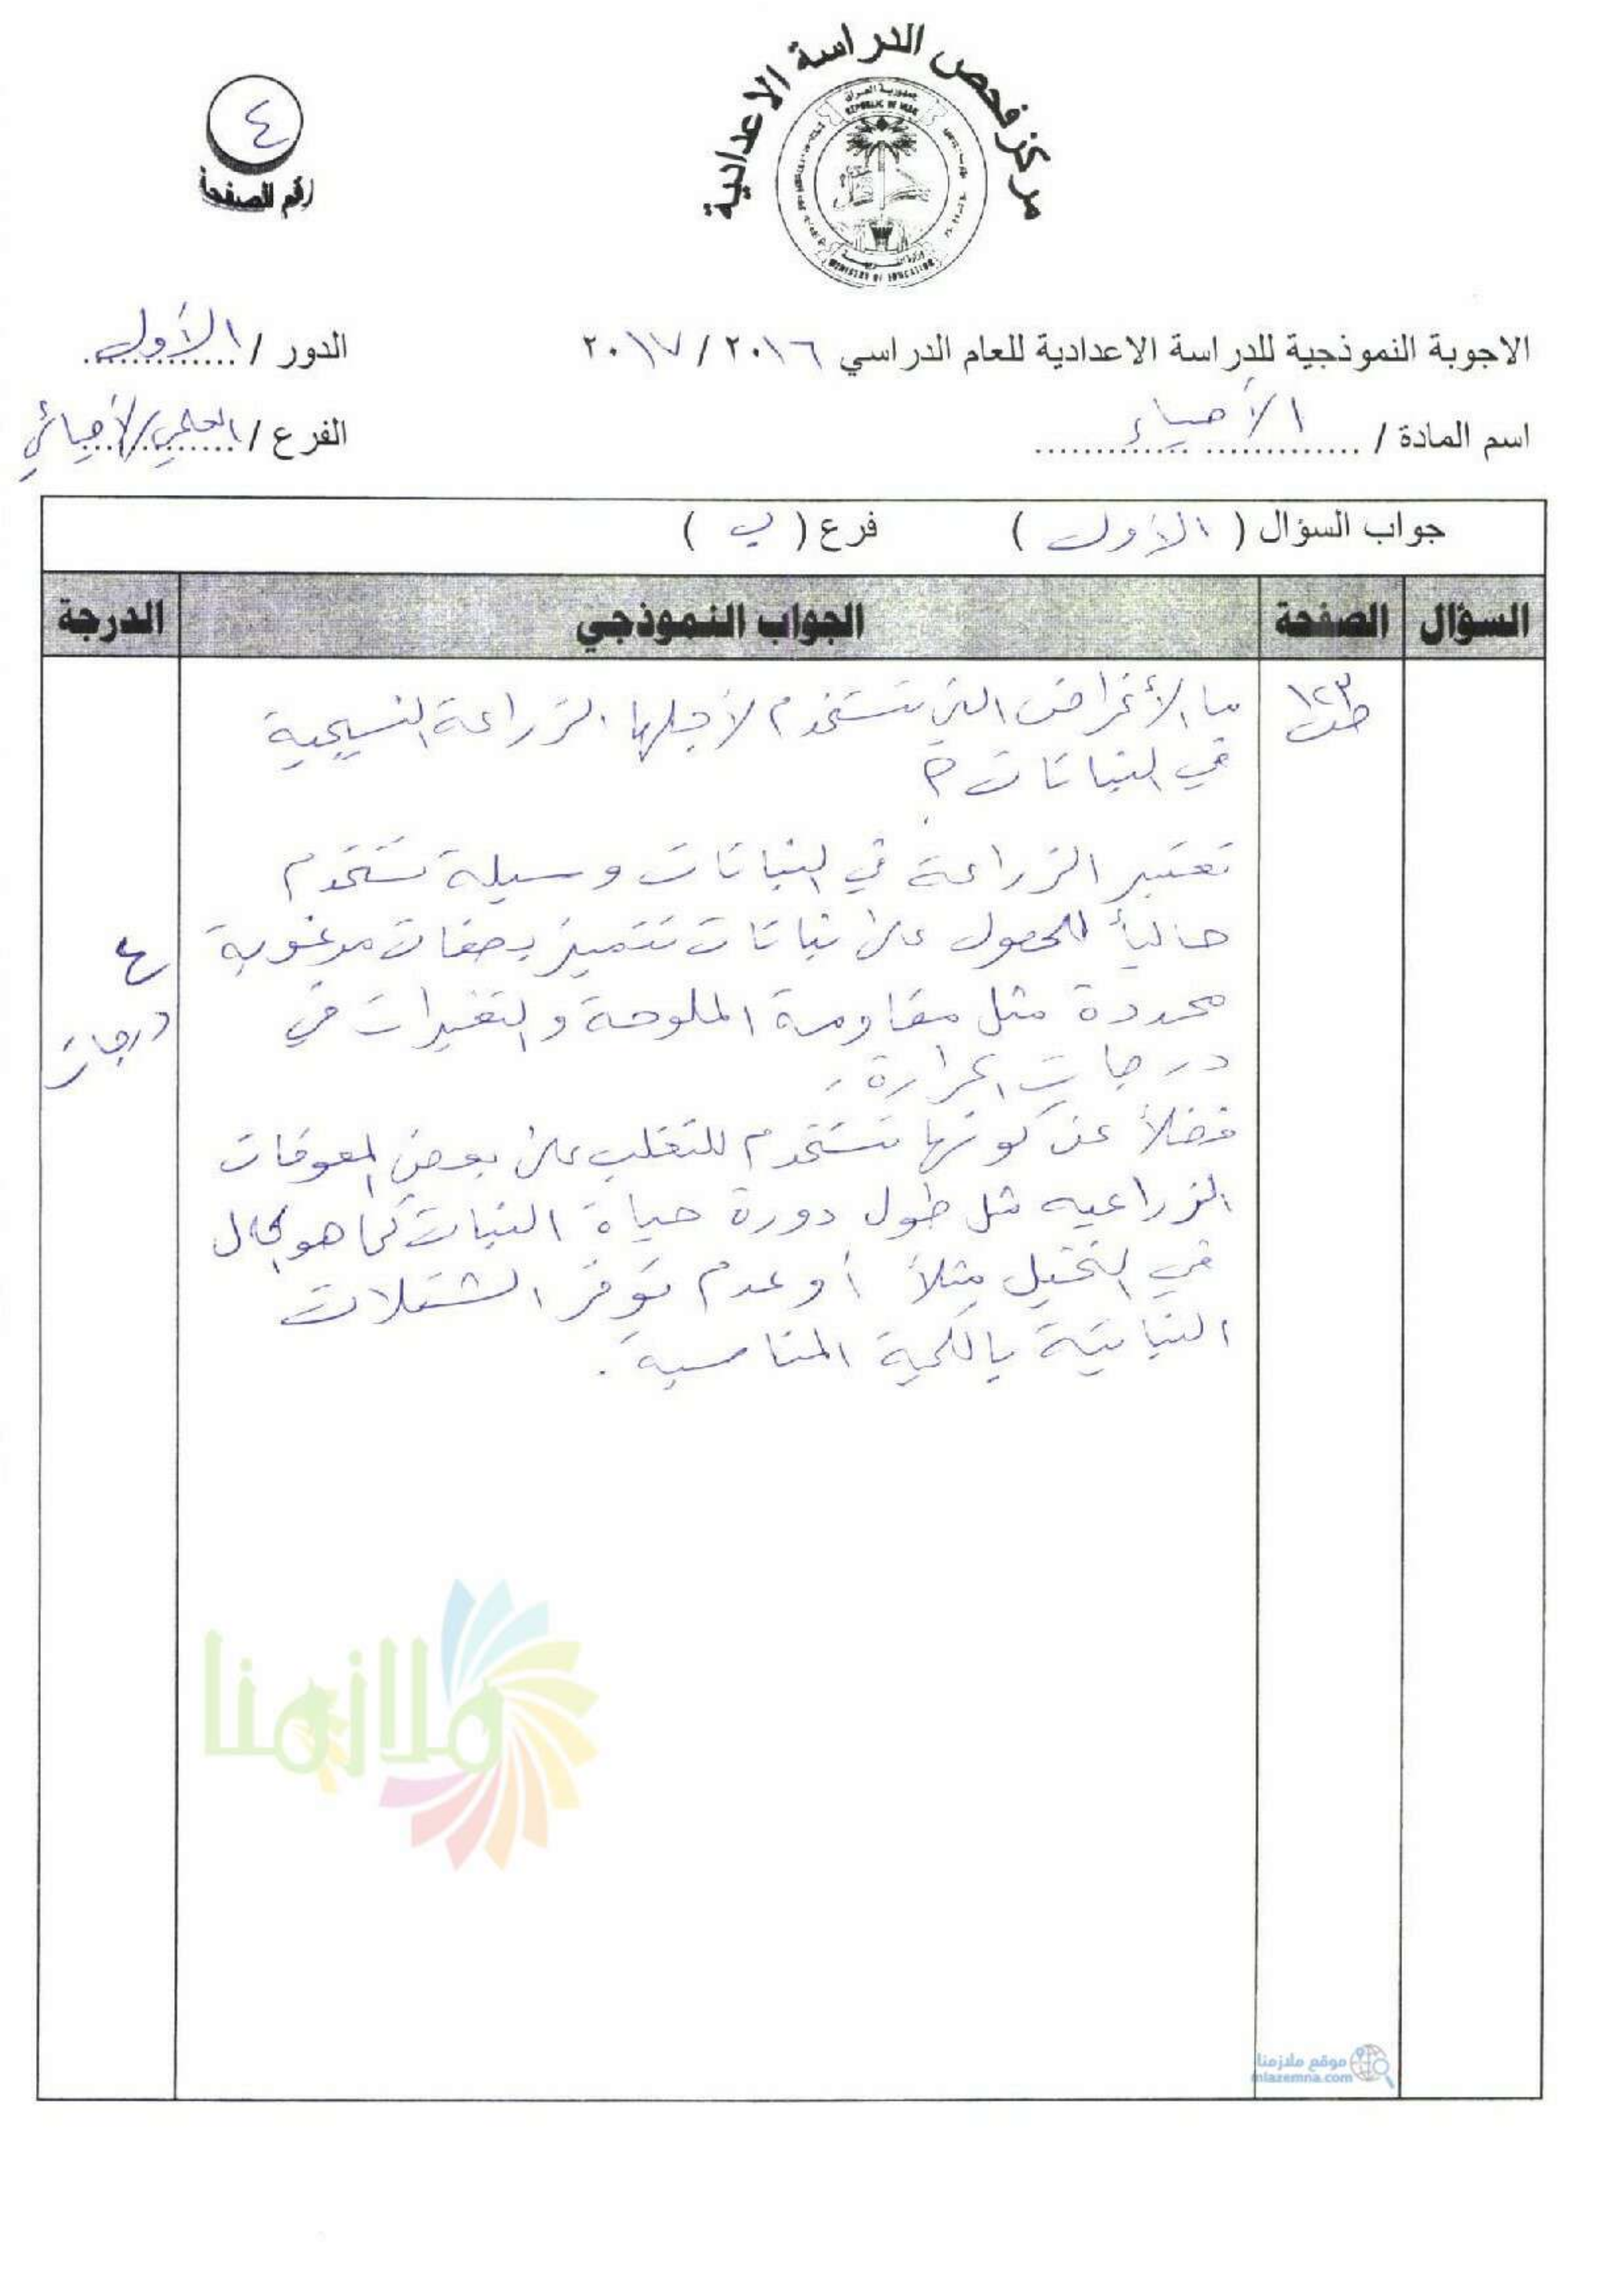 مركز فحص الدراسة الاعدادية
جمهورية العراق
REPUBLIC OF IRAQ
MINISTRY OF EDUCATION
٤
رقم الصفحة
الاجوبة النموذجية للدراسة الاعدادية للعام الدراسي ٢٠١٦ / ٢٠١٧
الدور / الأول
اسم المادة / الأحياء
الفرع / العلمي/الأحيائي
جواب السؤال ( الأول ) فرع ( ب )
السؤال الصفحة الجواب النموذجي الدرجة
ص١٢٣
ما الأغراض التي تستخدم لأجلها الزراعة النسيجية
في النباتات؟
تعتبر الزراعة في النباتات وسيلة تستخدم
حالياً للحصول على نباتات تتميز بصفات مرغوبة
محددة مثل مقاومة الملوحة والتغيرات في
درجات الحرارة.
فضلاً عن كونها تستخدم للتغلب على بعض المعوقات
الزراعيه مثل طول دورة حياة النبات كما هو الحال
في النخيل مثلاً أو عدم توفر الشتلات
النباتية بالكمية المناسبة.
٤
درجات
ملازمنا
موقع ملازمنا
mlazemna.com